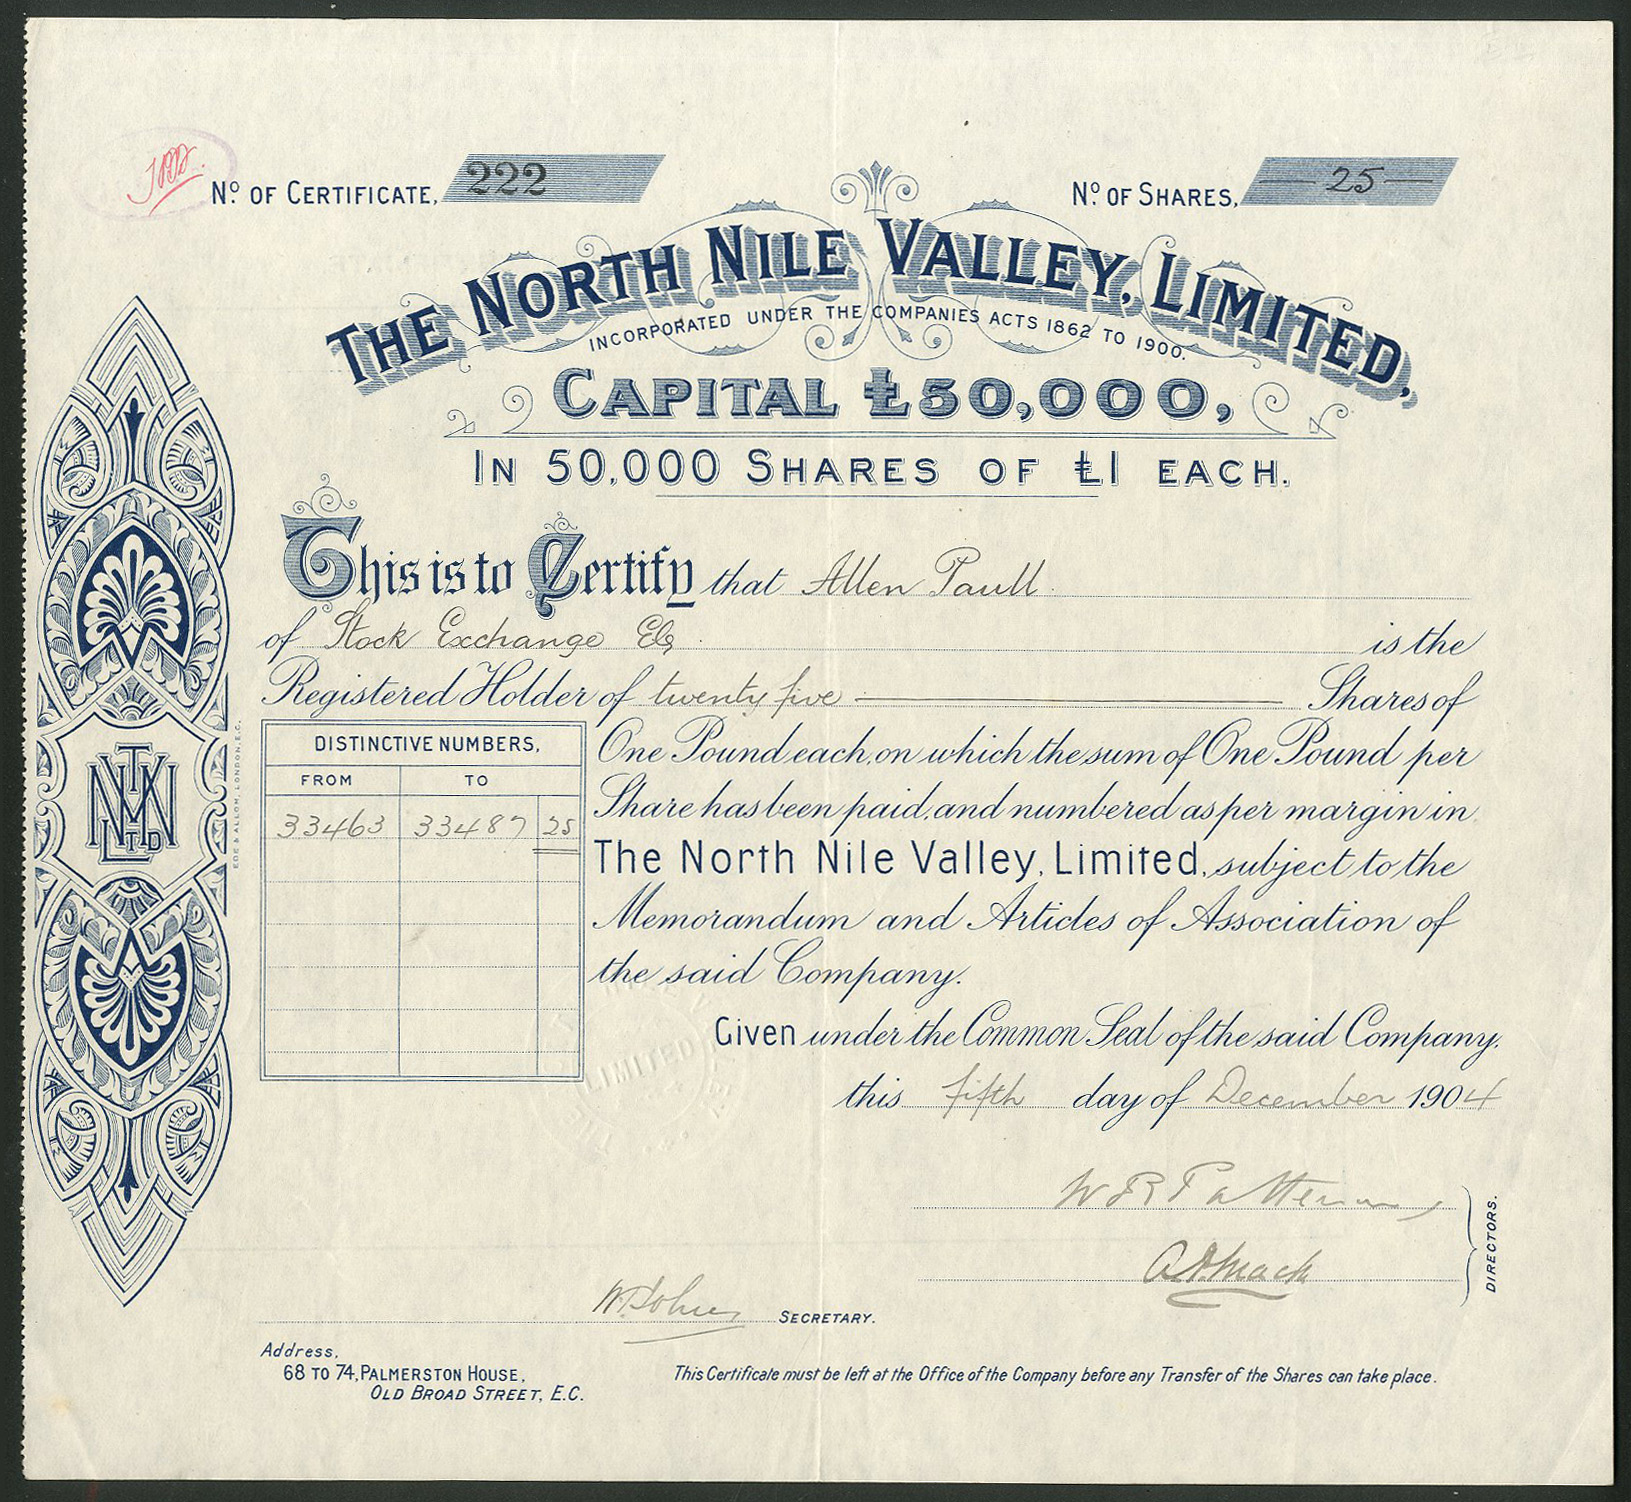 Nº. OF CERTIFICATE, 222
Nº. OF SHARES, 25
THE NORTH NILE VALLEY, LIMITED,
INCORPORATED UNDER THE COMPANIES ACTS 1862 TO 1900.
CAPITAL £50,000,
IN 50,000 SHARES OF £1 EACH.
This is to Certify that Allen Paull
of Stock Exchange EC is the
Registered Holder of twenty five Shares of
One Pound each, on which the sum of One Pound per
Share has been paid, and numbered as per margin in
The North Nile Valley, Limited, subject to the
Memorandum and Articles of Association of
the said Company.
DISTINCTIVE NUMBERS,
FROM TO
33463 33487 25
EDE & ALLOM, LONDON, E.C.
LTD
Given under the Common Seal of the said Company.
LIMITED
this fifth day of December 1904
DIRECTORS.
SECRETARY.
Address,
68 TO 74, PALMERSTON HOUSE,
OLD BROAD STREET, E.C.
This Certificate must be left at the Office of the Company before any Transfer of the Shares can take place.